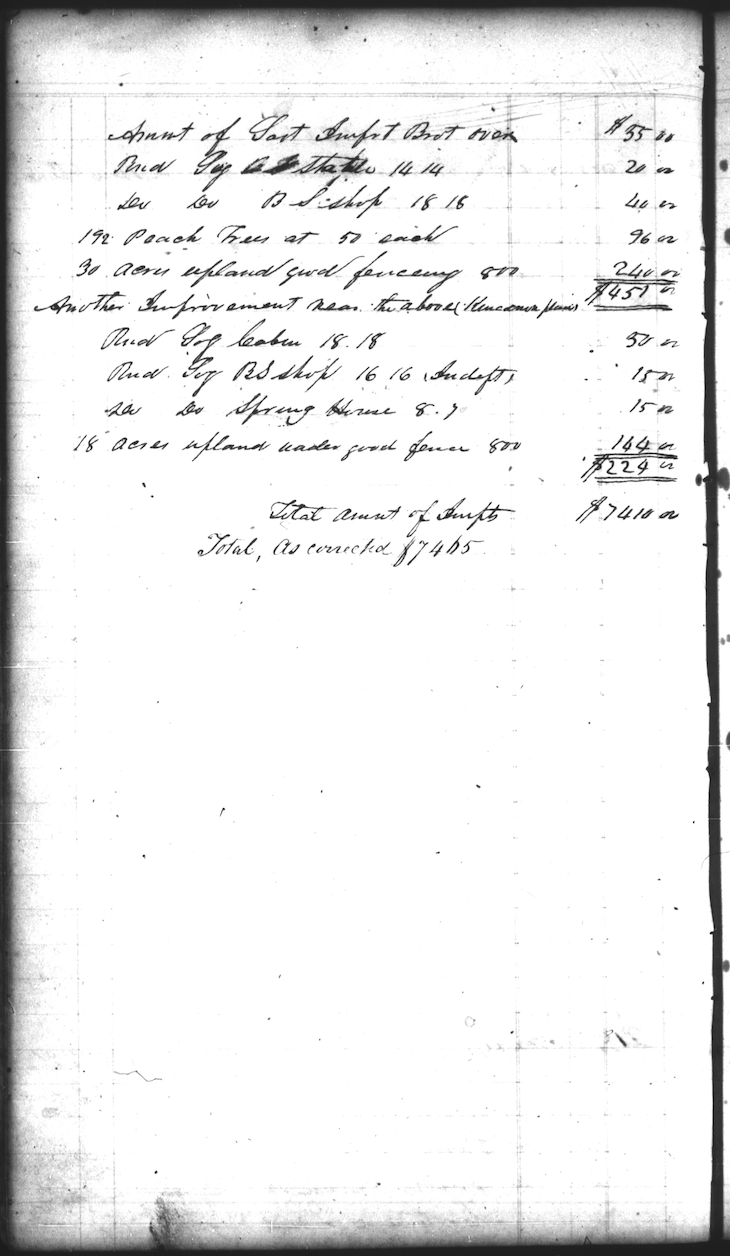 Amnt of Last Impt Brot over $55 00
Rnd Log Stable 14 14 20 00
Do Do B S shop 18 18 40 00
192 Peach Trees at 50 each 96 00
30 Acres upland good fenceing 800 240 00
$451 00
Another Improvement near the above ( place)
Rnd Log Cabin 18.18 50 00
Rnd Log B S shop 16 16 Indift 15 00
Do Do Spring House 8.7 15 00
18 Acres upland under good fence 800 144 00
$224 00
Total Amnt of Impts $7410 00
Total, As corrected